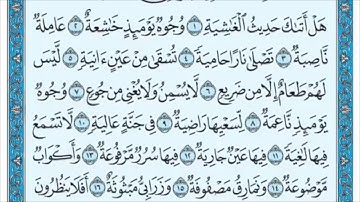 هَلْ أَتَىٰكَ حَدِيثُ ٱلْغَٰشِيَةِ ١ وُجُوهٌ يَوْمَئِذٍ خَٰشِعَةٌ ٢ عَامِلَةٌ
نَّاصِبَةٌ ٣ تَصْلَىٰ نَارًا حَامِيَةً ٤ تُسْقَىٰ مِنْ عَيْنٍ ءَانِيَةٍ ٥ لَّيْسَ
لَهُمْ طَعَامٌ إِلَّا مِن ضَرِيعٍ ٦ لَّا يُسْمِنُ وَلَا يُغْنِي مِن جُوعٍ ٧ وُجُوهٌ
يَوْمَئِذٍ نَّاعِمَةٌ ٨ لِّسَعْيِهَا رَاضِيَةٌ ٩ فِي جَنَّةٍ عَالِيَةٍ ١٠ لَّا تَسْمَعُ
فِيهَا لَٰغِيَةً ١١ فِيهَا عَيْنٌ جَارِيَةٌ ١٢ فِيهَا سُرُرٌ مَّرْفُوعَةٌ ١٣ وَأَكْوَابٌ
مَّوْضُوعَةٌ ١٤ وَنَمَارِقُ مَصْفُوفَةٌ ١٥ وَزَرَابِيُّ مَبْثُوثَةٌ ١٦ أَفَلَا يَنظُرُونَ